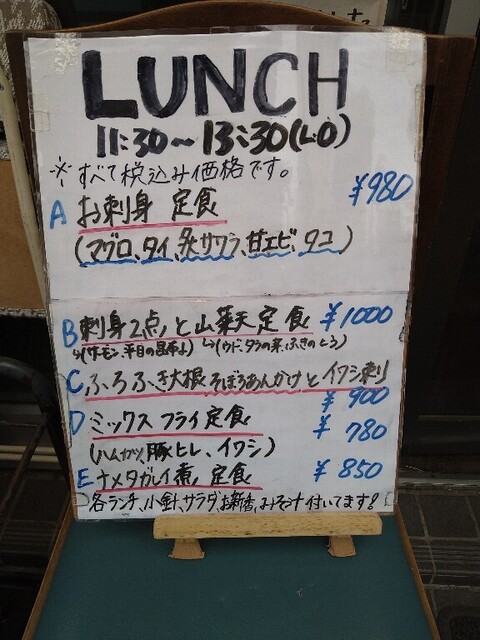 LUNCH
11:30~13:30(L.O)
※すべて税込み価格です。
A お刺身 定食 ¥980
(マグロ、タイ、炙サワラ、甘エビ、タコ)
B 刺身2点と山菜天定食 ¥1000
(サーモン、平目の昆布〆) (ウド、タラの芽、ふきのとう)
C ふろふき大根 そぼろあんかけとイワシ刺
¥900
D ミックスフライ定食 ¥780
(ハムカツ、豚ヒレ、イワシ)
E ナメタガレイ煮 定食 ¥850
各ランチ、小鉢、サラダ、お新香、みそ汁付いてます!